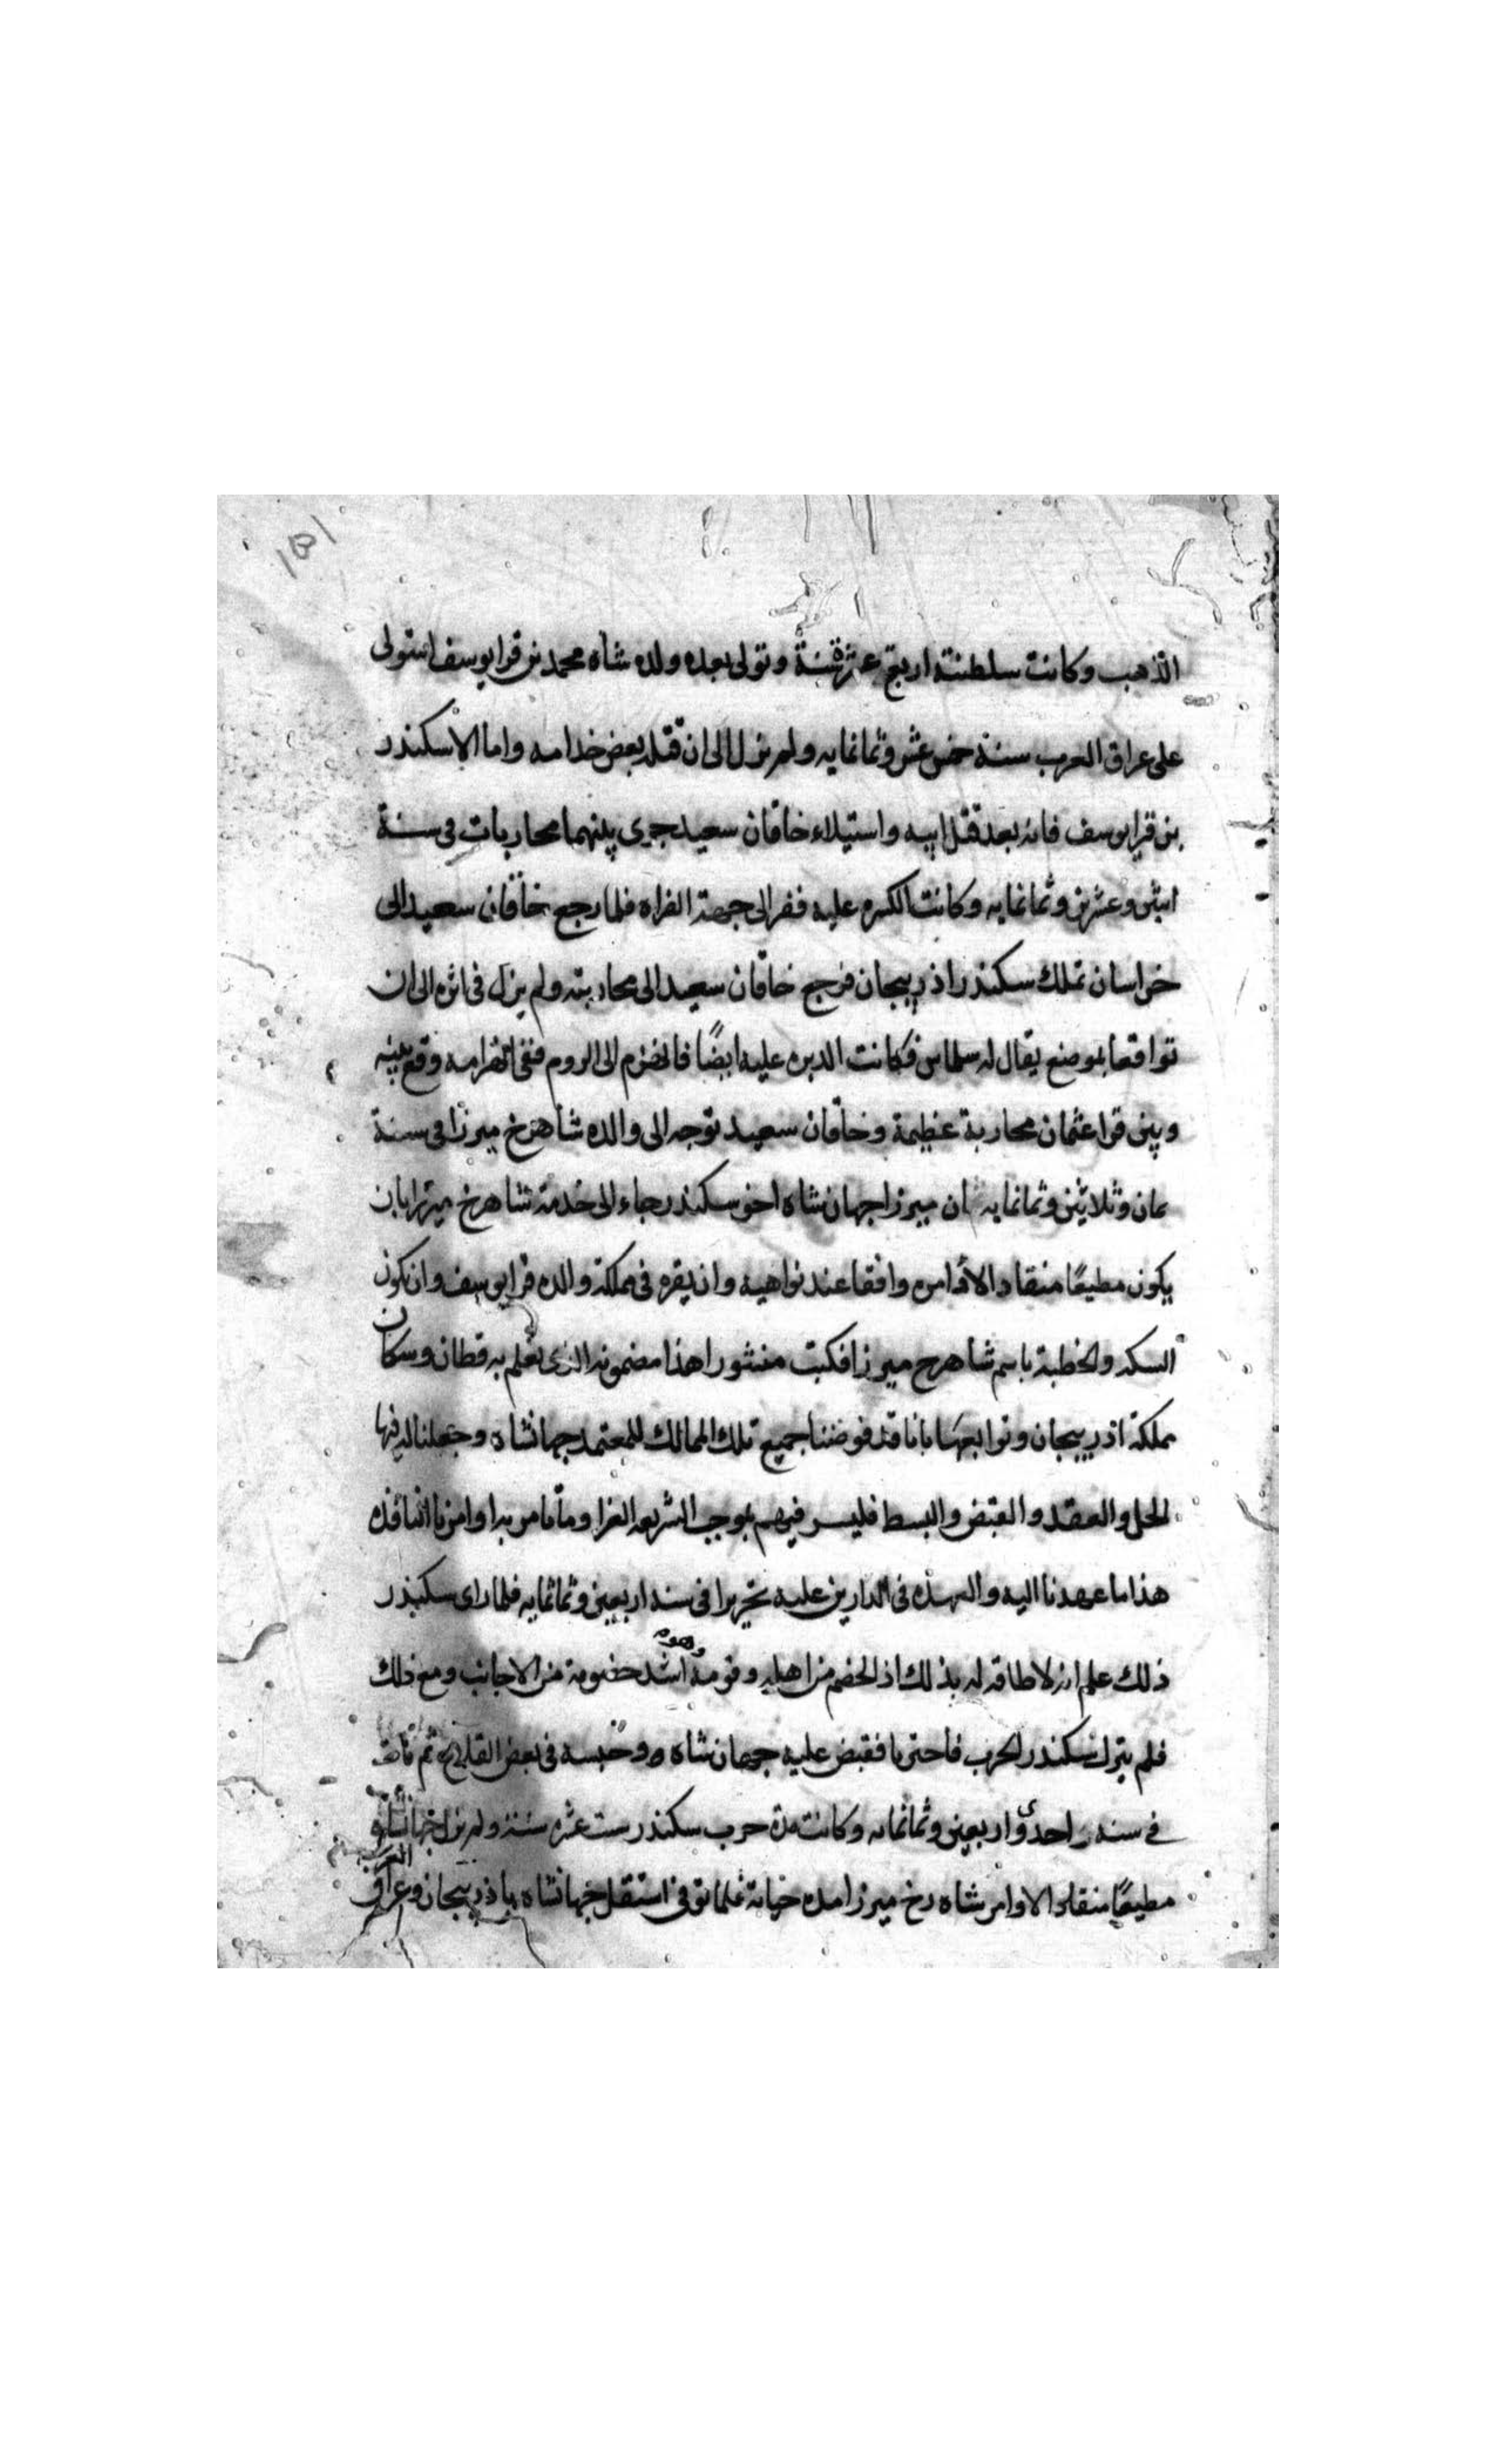 الذهب وكانت سلطنته اربع عشرة سنة وتولى بعده ولده شاه محمد بن قرا يوسف استولى
على عراق العرب سنة خمس عشر وثمانمايه ولم يزل الى ان قتله بعض خدامه واما الاسكندر
بن قرا يوسف فانه بعد قتل ابيه واستيلاء خاقان سعيد جرى بينهما محاربات فى سنة
اثنين وعشرين وثمانمايه وكانت الكسره عليه ففر الى جهة الفراه فلما رجع خاقان سعيد الى
خراسان تملك سكندر اذربيجان فرجع خاقان سعيد الى محاربته ولم يزل فى اثره الى ان
تواقعا بموضع يقال له سلماس فكانت الدبره عليه ايضًا فانهزم الى الروم ففى انهزامه وقع بينه
وبين قرا عثمان محاربة عظيمة وخاقان سعيد توجه الى والده شاهرخ ميرزا فى سنة
ثمان وثلاثين وثمانمايه ان ميرزا جهان شاه اخو سكندر جاء الى خدمة شاهرخ ميرزا بان
يكون مطيعًا منقادا لاوامره واقفا عند نواهيه وان يقره فى مملكة والده قرا يوسف وان تكون
السكه والخطبة باسم شاهرخ ميرزا فكتب منشورا هذا مضمونه الذى يعلم به قطان وسكان
مملكة اذربيجان وتوابعها بانا قد فوضنا جميع تلك الممالك للمعتمد جهانشاه وجعلنا له فيها
الحل والعقد والقبض والبسط فليسر فيهم بموجب الشريعه الغرا وما نامر به اوامرنا النافذه
هذا ما عهدنا اليه والعهدة فى الدارين عليه تحريرا فى سنه اربعين وثمانمايه فلما راى سكندر
ذلك علم انه لا طاقه له بذلك اذ الخصم من اهله وقومه وهو اشد خصومة من الاجانب ومع ذلك
فلم يترك سكندر الحرب فاحتربا فقبض عليه جهان شاه وحبسه فى بعض القلاع ثم مات
فى سنه احدى واربعين وثمانمايه وكانت مدة حرب سكندر ست عشره سنة ولم يزل جهانشاه
مطيعًا منقادا لاوامر شاه رخ ميرزا مدة حياته فلما توفى استقل جهانشاه باذربيجان وعراق العرب